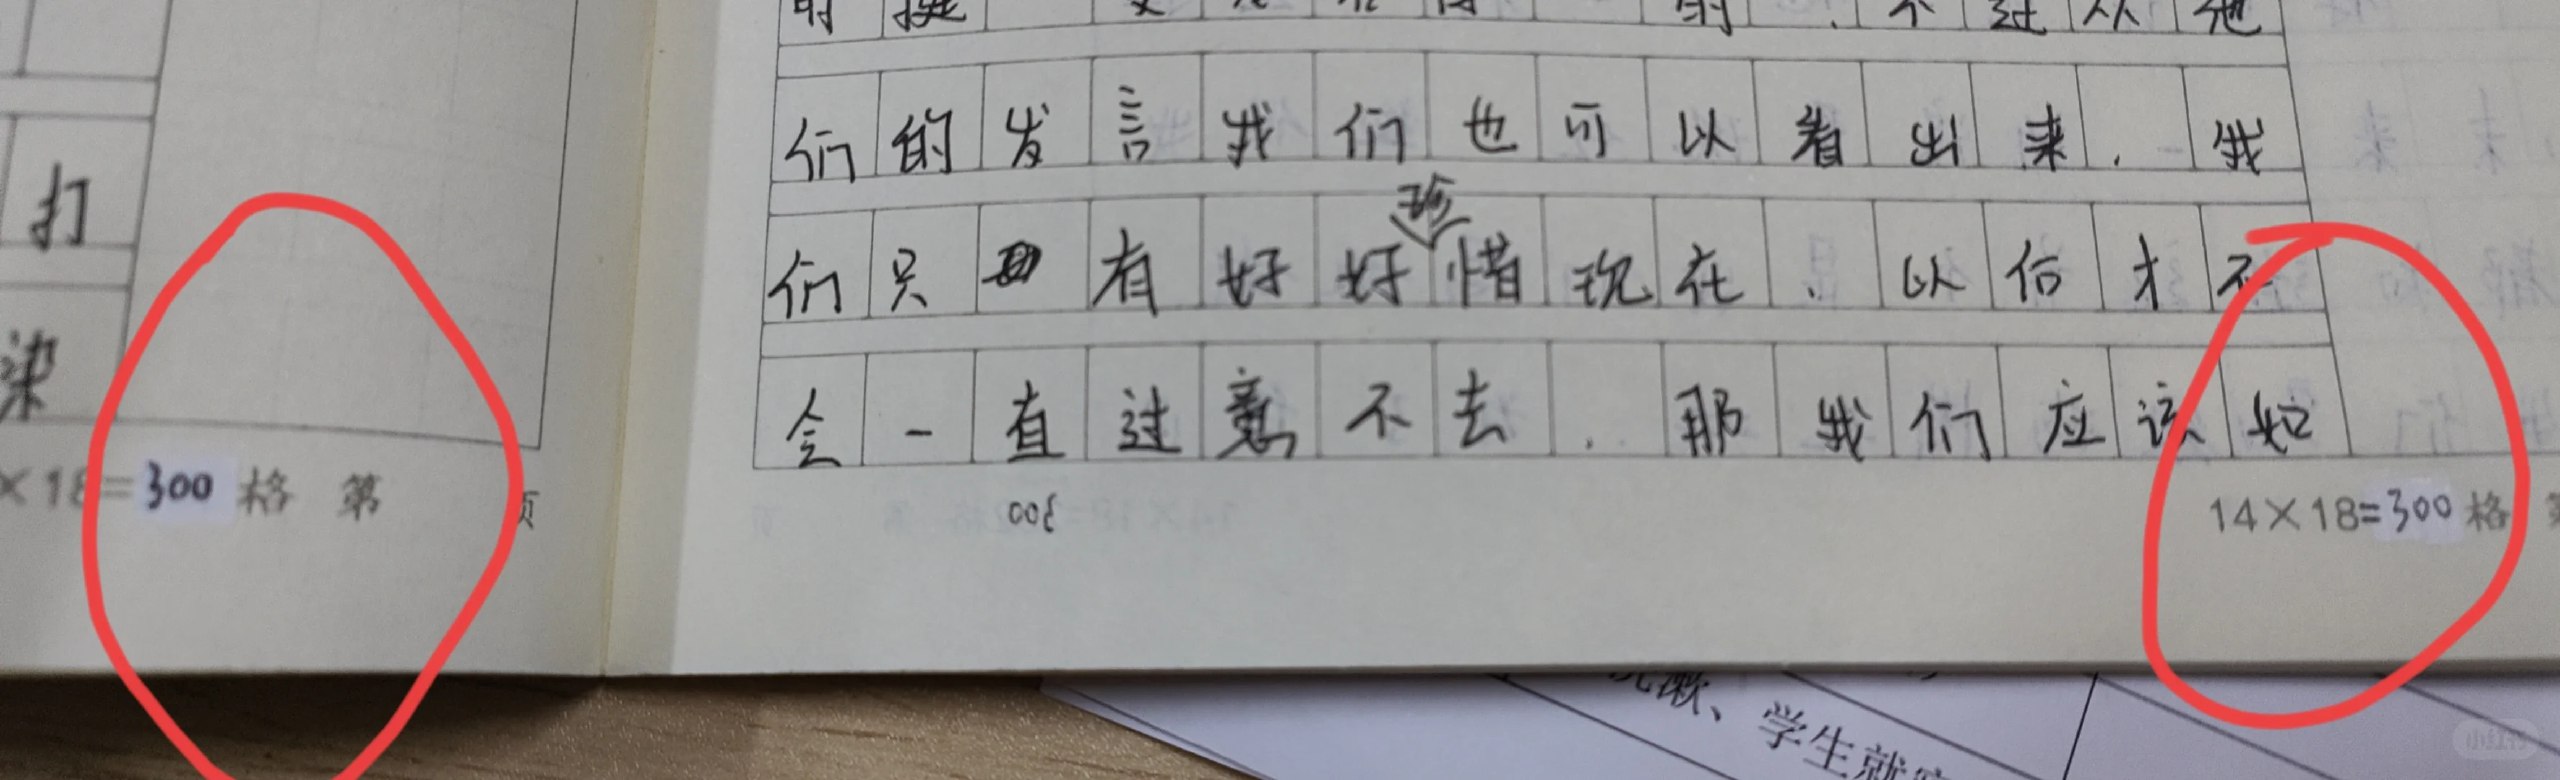 打
染
×18=300格 第 页
不过从他
们的发言我们也可以看出来，我
珍
们只有好好惜现在，以后才不
会一直过意不去，那我们应该如
14×18=300格 第
学生就